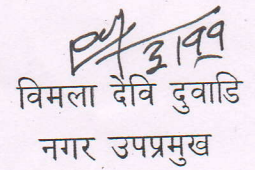 विमला देवि दुवाडि
नगर उपप्रमुख